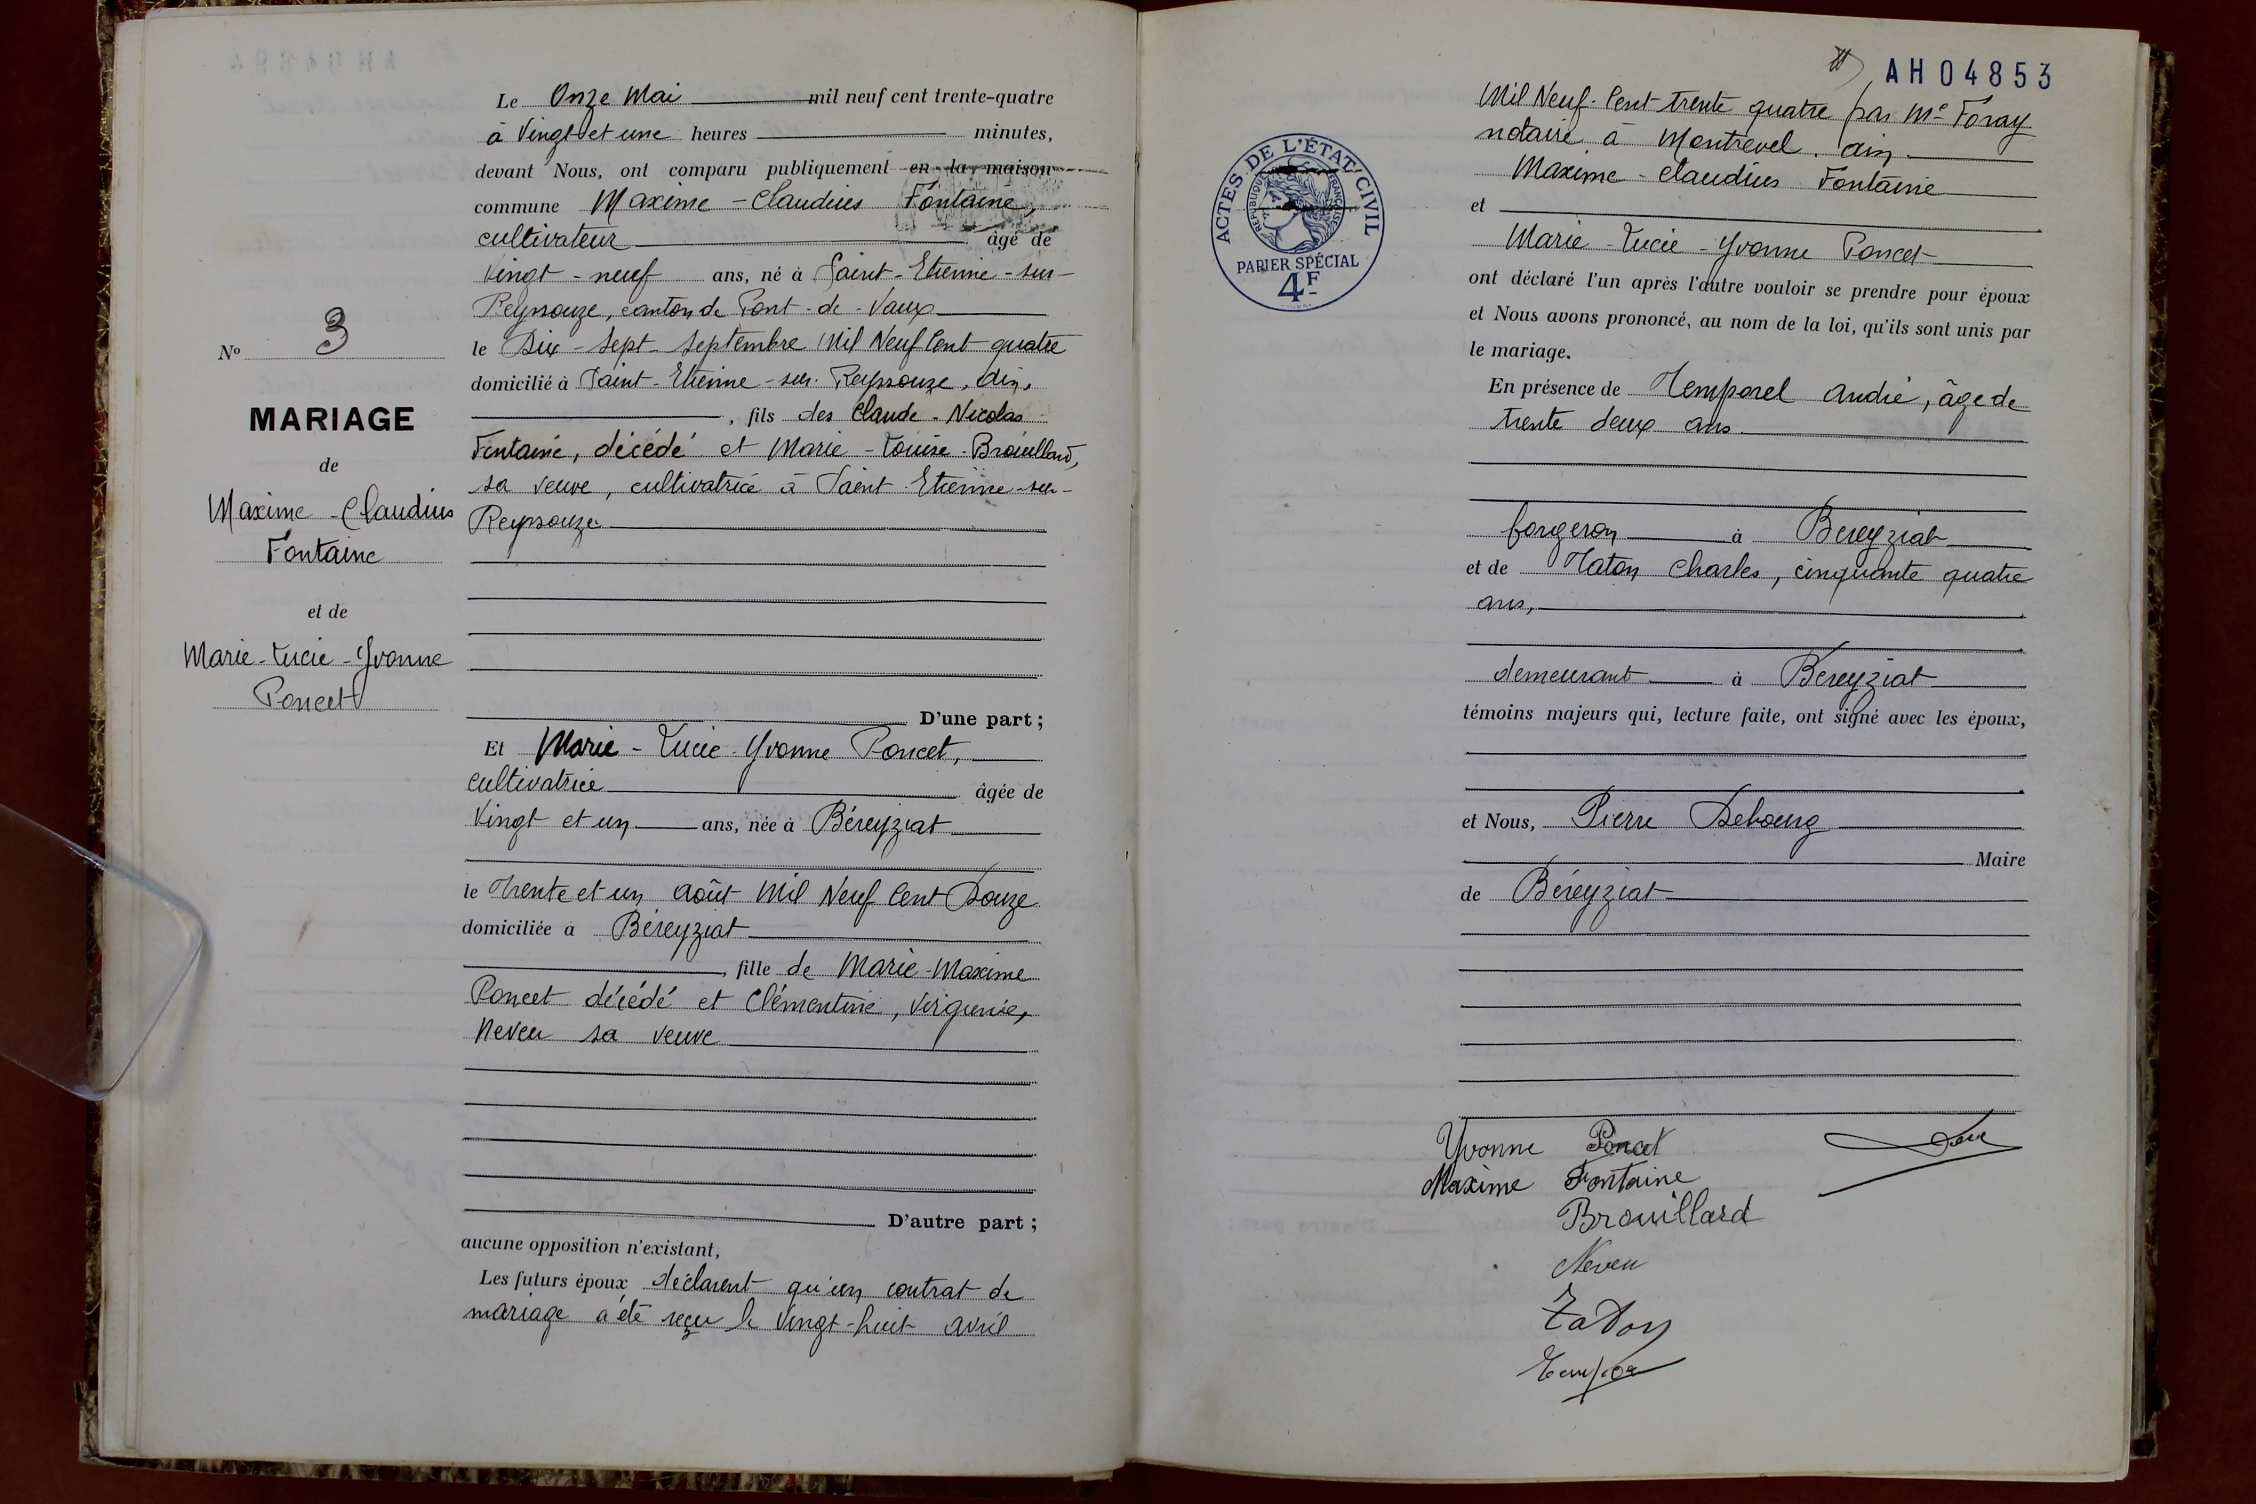 Le Onze Mai mil neuf cent trente-quatre
à Vingt et une heures minutes,
devant Nous, ont comparu publiquement en la maison
commune Maxime - Claudius Fontaine,
cultivateur âgé de
vingt - neuf ans, né à Saint - Etienne - sur -
Reyssouze, canton de Pont - de - Vaux
le Dix - Sept - Septembre Mil Neuf Cent quatre
domicilié à Saint - Etienne - sur - Reyssouze, Ain,
, fils des Claude - Nicolas
Fontaine, décédé et Marie - Louise - Brouillard,
sa veuve, cultivatrice à Saint - Etienne - sur -
Reyssouze
No 3
MARIAGE
de
Maxime - Claudius
Fontaine
et de
Marie - Lucie - Yvonne
Poncet
D'une part ;
Et Marie - Lucie - Yvonne Poncet,
cultivatrice âgée de
Vingt et un ans, née à Béreyziat
le Trente et un août Mil Neuf Cent Douze
domiciliée à Béreyziat
, fille de Marie - Maxime
Poncet décédé et Clémentine, Virginie,
Neveu sa veuve
D'autre part ;
aucune opposition n'existant,
Les futurs époux déclarent qu'un contrat de
mariage a été reçu le Vingt - huit avril
AH04853
Mil Neuf - Cent - trente quatre par Me Foray
notaire à Montrevel. Ain
Maxime - Claudius Fontaine
et
Marie - Lucie - Yvonne Poncet
ont déclaré l'un après l'autre vouloir se prendre pour époux
et Nous avons prononcé, au nom de la loi, qu'ils sont unis par
le mariage.
En présence de Temporel André, âge de
trente deux ans
forgeron à Béreyziat
et de Taton Charles, cinquante quatre
ans,
demeurant à Béreyziat
témoins majeurs qui, lecture faite, ont signé avec les époux,
et Nous, Pierre Debourg
Maire
de Béreyziat
ACTES DE L'ÉTAT CIVIL
RÉPUBLIQUE FRANÇAISE
PAPIER SPÉCIAL
4F
Yvonne Poncet
Maxime Fontaine
Brouillard
Neveu
Taton